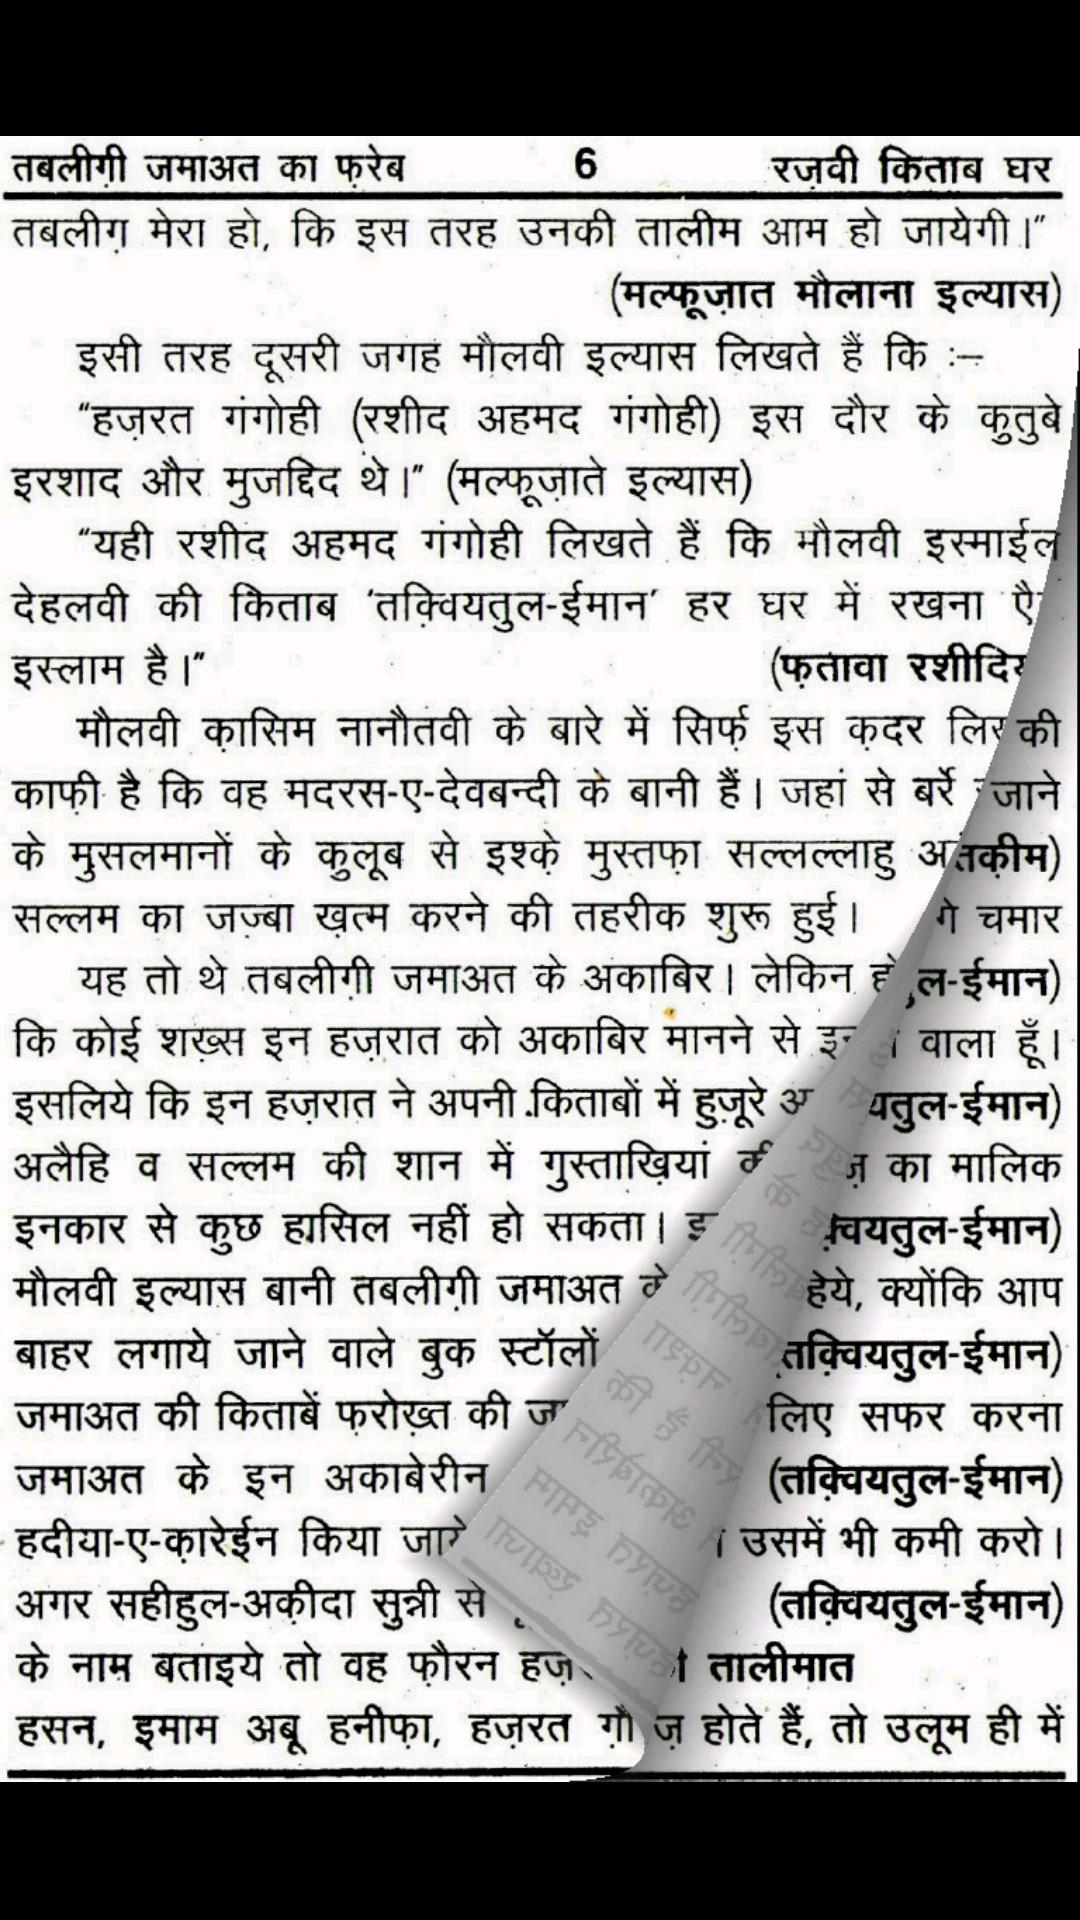 तबलीग़ी जमाअत का फ़रेब 6 रज़वी किताब घर
तबलीग़ मेरा हो, कि इस तरह उनकी तालीम आम हो जायेगी।"
(मल्फ़ूज़ात मौलाना इल्यास)
इसी तरह दूसरी जगह मौलवी इल्यास लिखते हैं कि :–
"हज़रत गंगोही (रशीद अहमद गंगोही) इस दौर के कुतुबे
इरशाद और मुजद्दिद थे।" (मल्फ़ूज़ाते इल्यास)
"यही रशीद अहमद गंगोही लिखते हैं कि मौलवी इस्माईल
देहलवी की किताब 'तक़्वियतुल-ईमान' हर घर में रखना
इस्लाम है।" (फ़तावा
मौलवी क़ासिम नानौतवी के बारे में सिर्फ़ इस क़दर की
काफ़ी है कि वह मदरस-ए-देवबन्दी के बानी हैं। जहां से बर्रे जाने
के मुसलमानों के कुलूब से इश्क़े मुस्तफ़ा सल्लल्लाहु
सल्लम का जज़्बा ख़त्म करने की तहरीक शुरू हुई। चमार
यह तो थे तबलीग़ी जमाअत के अकाबिर। लेकिन
कि कोई शख़्स इन हज़रात को अकाबिर मानने से वाला हूँ।
इसलिये कि इन हज़रात ने अपनी किताबों में हुज़ूरे
अलैहि व सल्लम की शान में गुस्ताख़ियां का मालिक
इनकार से कुछ हासिल नहीं हो सकता।
मौलवी इल्यास बानी तबलीग़ी जमाअत क्योंकि आप
बाहर लगाये जाने वाले बुक स्टॉलों तक़्वियतुल-ईमान)
जमाअत की किताबें फ़रोख़्त की लिए सफर करना
जमाअत के इन अकाबेरीन (तक़्वियतुल-ईमान)
हदीया-ए-क़ारेईन किया उसमें भी कमी करो।
अगर सहीहुल-अक़ीदा सुन्नी से (तक़्वियतुल-ईमान)
के नाम बताइये तो वह फ़ौरन तालीमात
हसन, इमाम अबू हनीफ़ा, हज़रत होते हैं, तो उलूम ही में